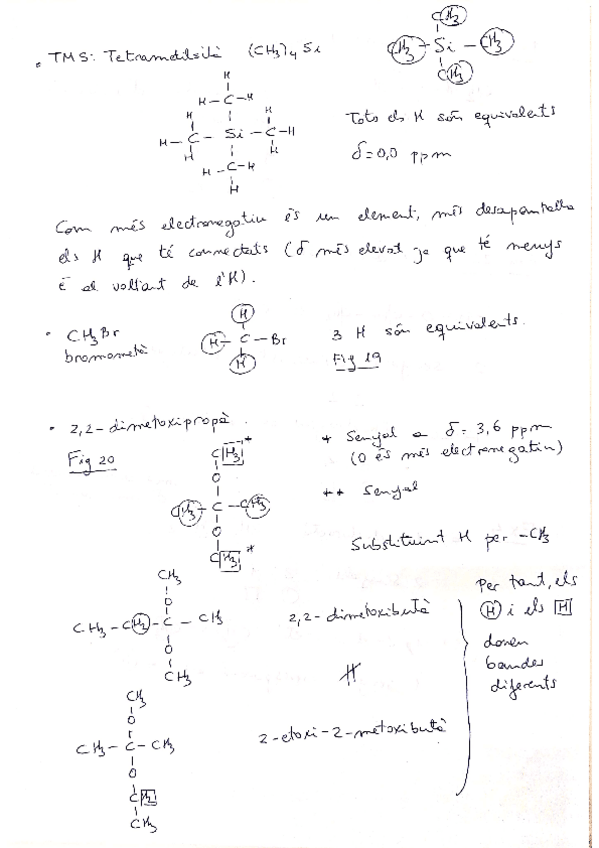 • TMS: Tetrametilsilà (CH3)4 Si
CH3
CH3 – Si – CH3
CH3
H
H – C – H
H H
H – C – Si – C – H
H H
H – C – H
H
Tots els H són equivalents
δ = 0,0 ppm
Com més electronegatiu és un element, més desapantalla
els H que té connectats (δ més elevat ja que té menys
ē al voltant de l'H).
• CH3Br
bromometà
H
H – C – Br
H
3 H són equivalents.
Fig 19
• 2,2-dimetoxipropà.
Fig 20
CH3 *
O
CH3 – C – CH3
O
CH3 *
* Senyal a δ = 3,6 ppm
(O és més electronegatiu)
** Senyal
Substituint H per -CH3
CH3
O
CH3 – CH2 – C – CH3
O
CH3
2,2-dimetoxibutà
CH3
O
CH3 – C – CH3
O
CH2
CH3
2-etoxi-2-metoxibutà
Per tant, els
H i els H
donen
bandes
diferents